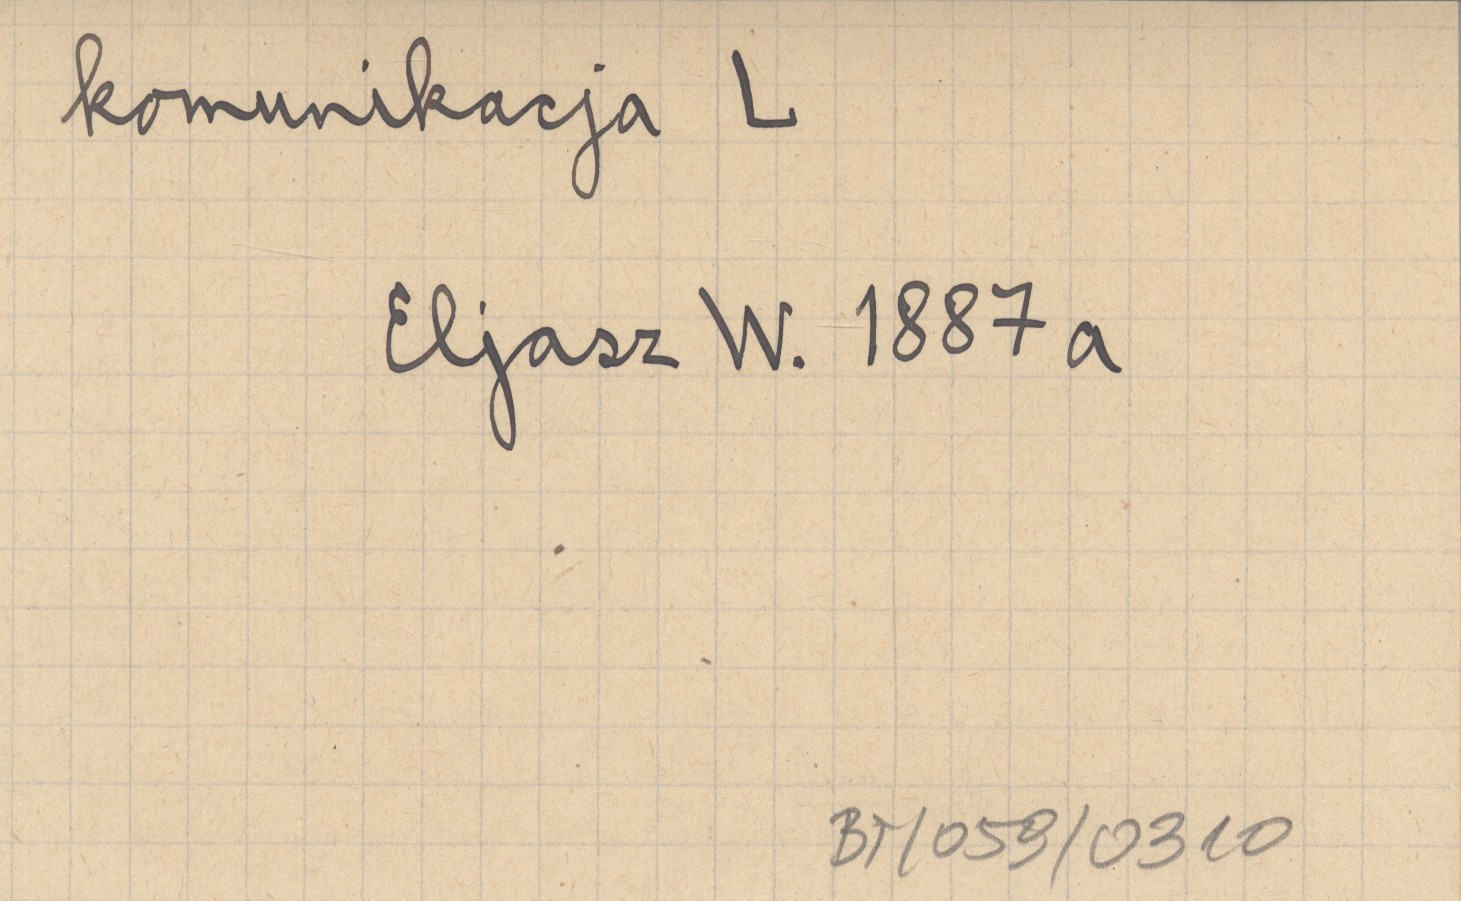 komunikacja L
Eljasz W. 1887a
BT/059/0310